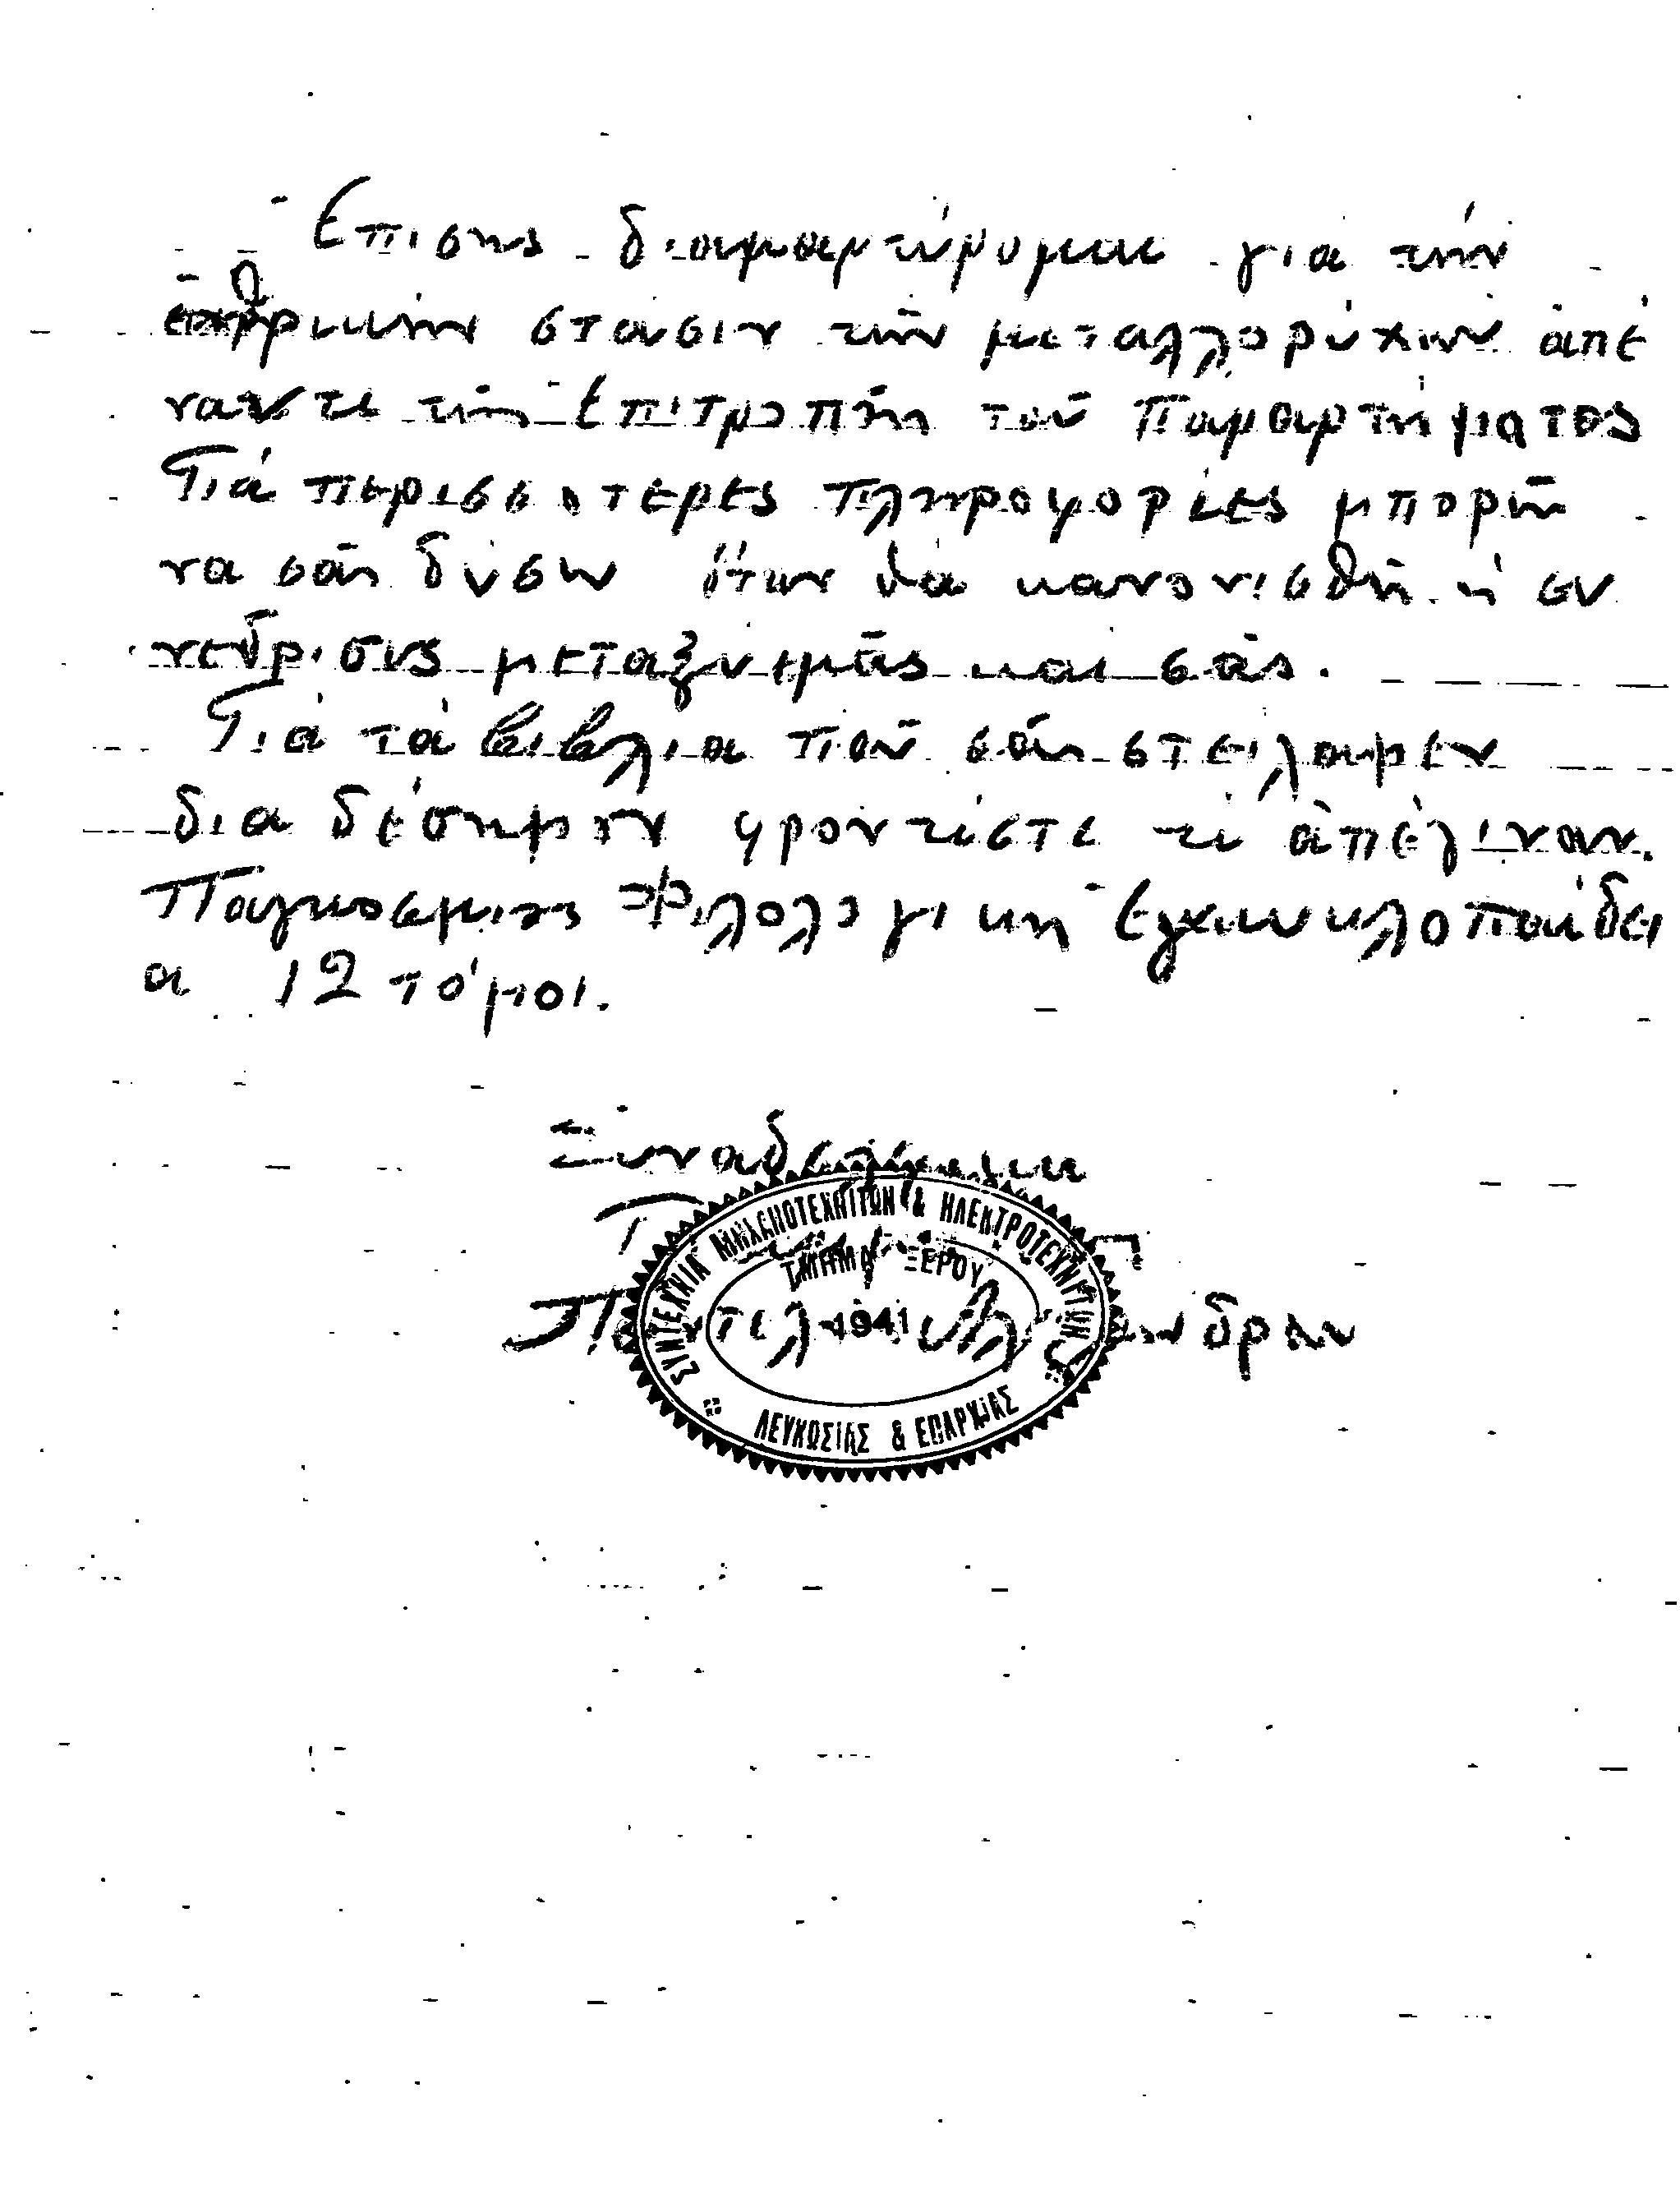 Επισης διαμαρτύρομαι γιά τήν
ἐχθρικήν στάσιν τῶν μεταλλορύχων ἀπέ
ναντι τῆς Ἐπιτροπῆς τοῦ Παραρτήματος
Γιά περισσοτερες πληροφορίες μπορῶ
να σᾶς δύσω ὅταν θά κανονισθῆ ἡ συ
νεδρισυς μεταξυ ημᾶς και σᾶς.
Γιά τά βιβλια ποῦ σᾶς στείλαμεν
δια δέσημον φροντίστε τί ἀπέγιναν.
Παγκοσμιος Φιλολογικη Εγκυκλοπαίδει
α 12 τόμοι.
Ξυναδελφικα
ΣΥΝΤΕΧΝΙΑ ΜΗΧΑΝΟΤΕΧΝΙΤΩΝ & ΗΛΕΚΤΡΟΤΕΧΝΙΤΩΝ
ΤΜΗΜΑ ΞΕΡΟΥ
1941
ΛΕΥΚΩΣΙΑΣ & ΕΠΑΡΧΙΑΣ